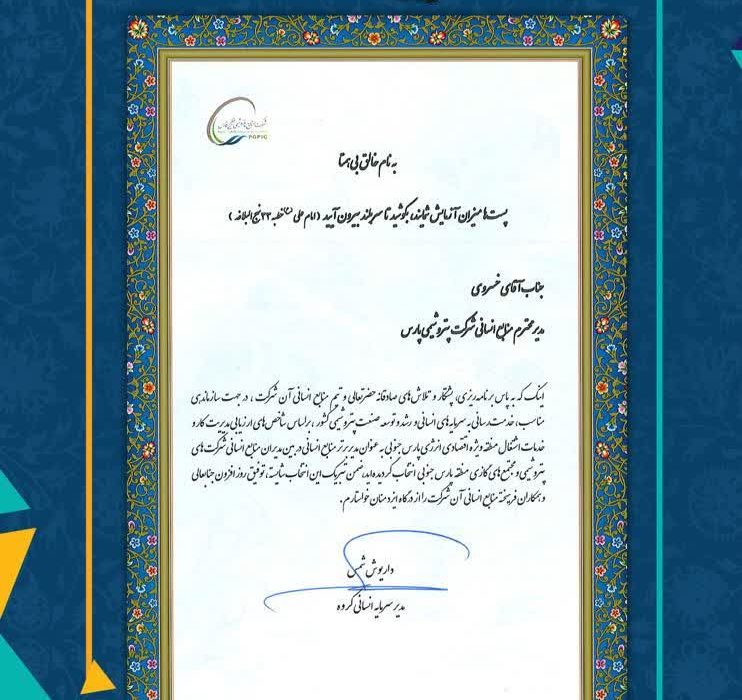 شرکت صنایع پتروشیمی خلیج فارس
PGPIC
به نام خالق بی همتا
پست‌ها میزان آزمایش شمایند، بکوشید تا سربلند بیرون آیید (امام علی (ع) خطبه ۳۳ نهج البلاغه)
جناب آقای خسروی
مدیر محترم منابع انسانی شرکت پتروشیمی پارس
اینک که به پاس برنامه ریزی، پشتکار و تلاش های صادقانه حضرتعالی و تیم منابع انسانی آن شرکت، در جهت سازماندهی
مناسب، خدمت رسانی به سرمایه های انسانی و رشد و توسعه صنعت پتروشیمی کشور، براساس شاخص های ارزیابی مدیریت کار و
خدمات اشتغال منطقه ویژه اقتصادی انرژی پارس جنوبی به عنوان مدیر برتر منابع انسانی در بین مدیران منابع انسانی شرکت های
پتروشیمی و مجتمع های گازی منطقه پارس جنوبی انتخاب گردیده اید، ضمن تبریک این انتخاب شایسته، توفیق روز افزون جنابعالی
و همکاران فرهیخته منابع انسانی آن شرکت را از درگاه ایزد منان خواستارم.
داریوش شمس
مدیر سرمایه انسانی گروه